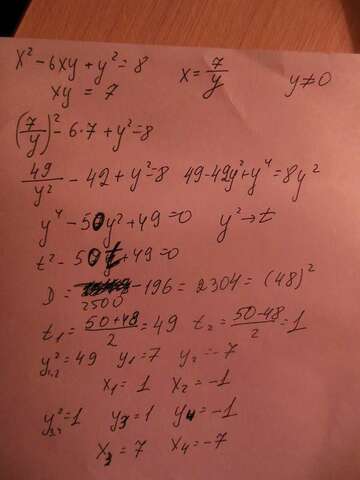 x² - 6xy + y² = 8
xy = 7    x = 7/y    y ≠ 0
(7/y)² - 6·7 + y² = 8
49/y² - 42 + y² = 8    49 - 42y² + y⁴ = 8y²
y⁴ - 50y² + 49 = 0    y² → t
t² - 50t + 49 = 0
D = 2500 - 196 = 2304 = (48)²
t₁ = (50+48)/2 = 49    t₂ = (50-48)/2 = 1
y²₁,₂ = 49    y₁ = 7    y₂ = -7
x₁ = 1    x₂ = -1
y²₃,₄ = 1    y₃ = 1    y₄ = -1
x₃ = 7    x₄ = -7